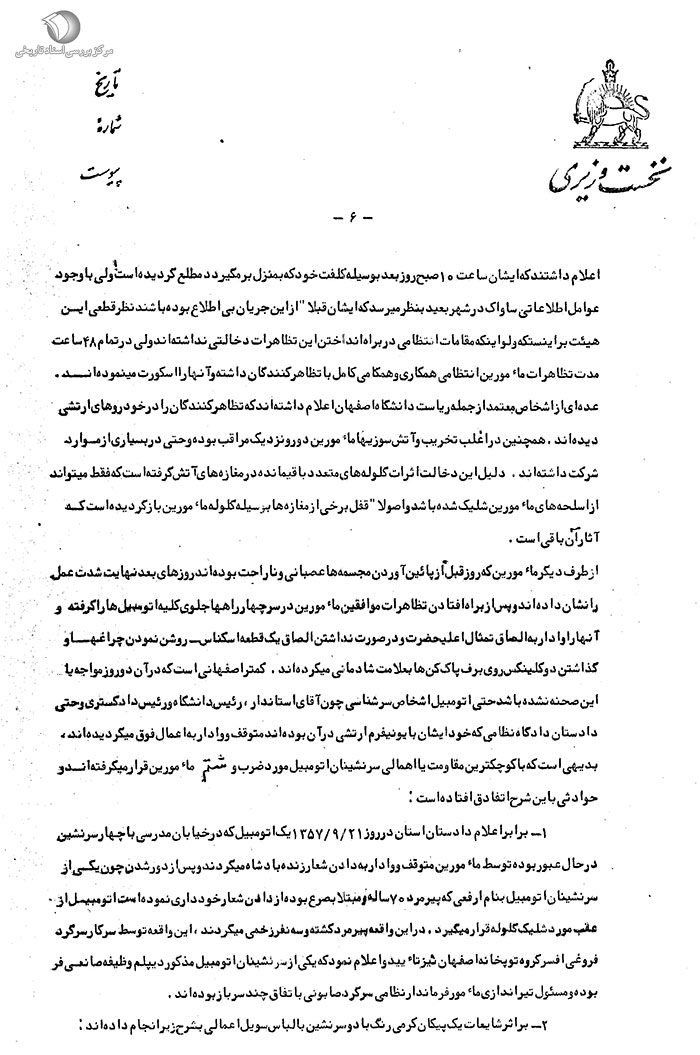 مرکز بررسی اسناد تاریخی
تاریخ
شمارهٔ
پیوست
نخست وزیری
- ۶ -
اعلام داشتند که ایشان ساعت ۱۰ صبح روز بعد بوسیله کلفت خود که بمنزل برمیگردد مطلع گردیده است ولی با وجود
عوامل اطلاعاتی ساواک در شهر بعید بنظر میرسد که ایشان قبلا" از این جریان بی اطلاع بوده باشند نظر قطعی ایـن
هیئت بر اینستکه ولو اینکه مقامات انتظامی در براه انداختن این تظاهرات دخالتی نداشته اند ولی در تمام ۴۸ ساعت
مدت تظاهرات مأمورین انتظامی همکاری و همگامی کامل با تظاهرکنندگان داشته و آنها را اسکورت مینموده انـد .
عده ای از اشخاص معتمد از جمله ریاست دانشگاه اصفهان اعلام داشته اند که تظاهرکنندگان را در خودروهای ارتشی
دیده اند . همچنین در اغلب تخریب و آتش سوزیها مأمورین دور و نزدیک مراقب بوده و حتی در بسیاری از مـوارد
شرکت داشته اند . دلیل این دخالت اثرات گلوله های متعدد باقیمانده در مغازه های آتش گرفته است که فقط میتواند
از اسلحه های مأمورین شلیک شده باشد و اصولا" قفل برخی از مغازه ها بوسیله گلوله مأمورین باز گردیده است کـه
آثار آن باقی است .
از طرف دیگر مأمورین که روز قبل از پائین آوردن مجسمه ها عصبانی و ناراحت بوده اند روزهای بعد نهایت شدت عمل
را نشان داده اند و پس از براه افتادن تظاهرات موافقین مأمورین در سر چهارراهها جلوی کلیه اتومبیل ها را گرفته و
آنها را وادار به الصاق تمثال اعلیحضرت و در صورت نداشتن الصاق یک قطعه اسکناس ـ روشن نمودن چراغهـا و
گذاشتن دو کلینکس روی برف پاک کن ها بعلامت شادمانی میکرده اند . کمتر اصفهانی است که در آن دو روز مواجه با
این صحنه نشده باشد حتی اتومبیل اشخاص سرشناسی چون آقای استاندار ، رئیس دانشگاه و رئیس دادگستری و حتی
دادستان دادگاه نظامی که خود ایشان با یونیفرم ارتشی در آن بوده اند متوقف و وادار به اعمال فوق میگردیده اند ،
بدیهی است که با کوچکترین مقاومت یا اهمالی سرنشینان اتومبیل مورد ضرب و شتم مأمورین قرار میگرفته انـد و
حوادثی باین شرح اتفادق افتاده است :
۱ـ برابر اعلام دادستان استان در روز ۱۳۵۷/۹/۲۱ یک اتومبیل که در خیابان مدرسی با چهار سرنشین
در حال عبور بوده توسط مأمورین متوقف و وادار به دادن شعار زنده باد شاه میگردند و پس از دور شدن چون یکـی از
سرنشینان اتومبیل بنام ارفعی که پیرمرد ۷۰ ساله و مبتلا بصرع بوده از دادن شعار خودداری نموده است اتومبیـل از
عقب مورد شلیک گلوله قرار میگیرد . در این واقعه پیرمرد کشته و سه نفر زخمی میگردند ، این واقعه توسط سرکار سرگرد
فروغی افسر گروه توپخانه اصفهان نیز تائید و اعلام نمود که یکی از سرنشینان اتومبیل مذکور دیپلم وظیفه صانعی فر
بوده و مسئول تیراندازی مأمور فرماندار نظامی سرگرد صابونی با تفاق چند سرباز بوده اند .
۲ـ بر اثر شایعات یک پیکان کرمی رنگ با دو سرنشین با لباس سویل اعمالی بشرح زیر انجام داده اند :